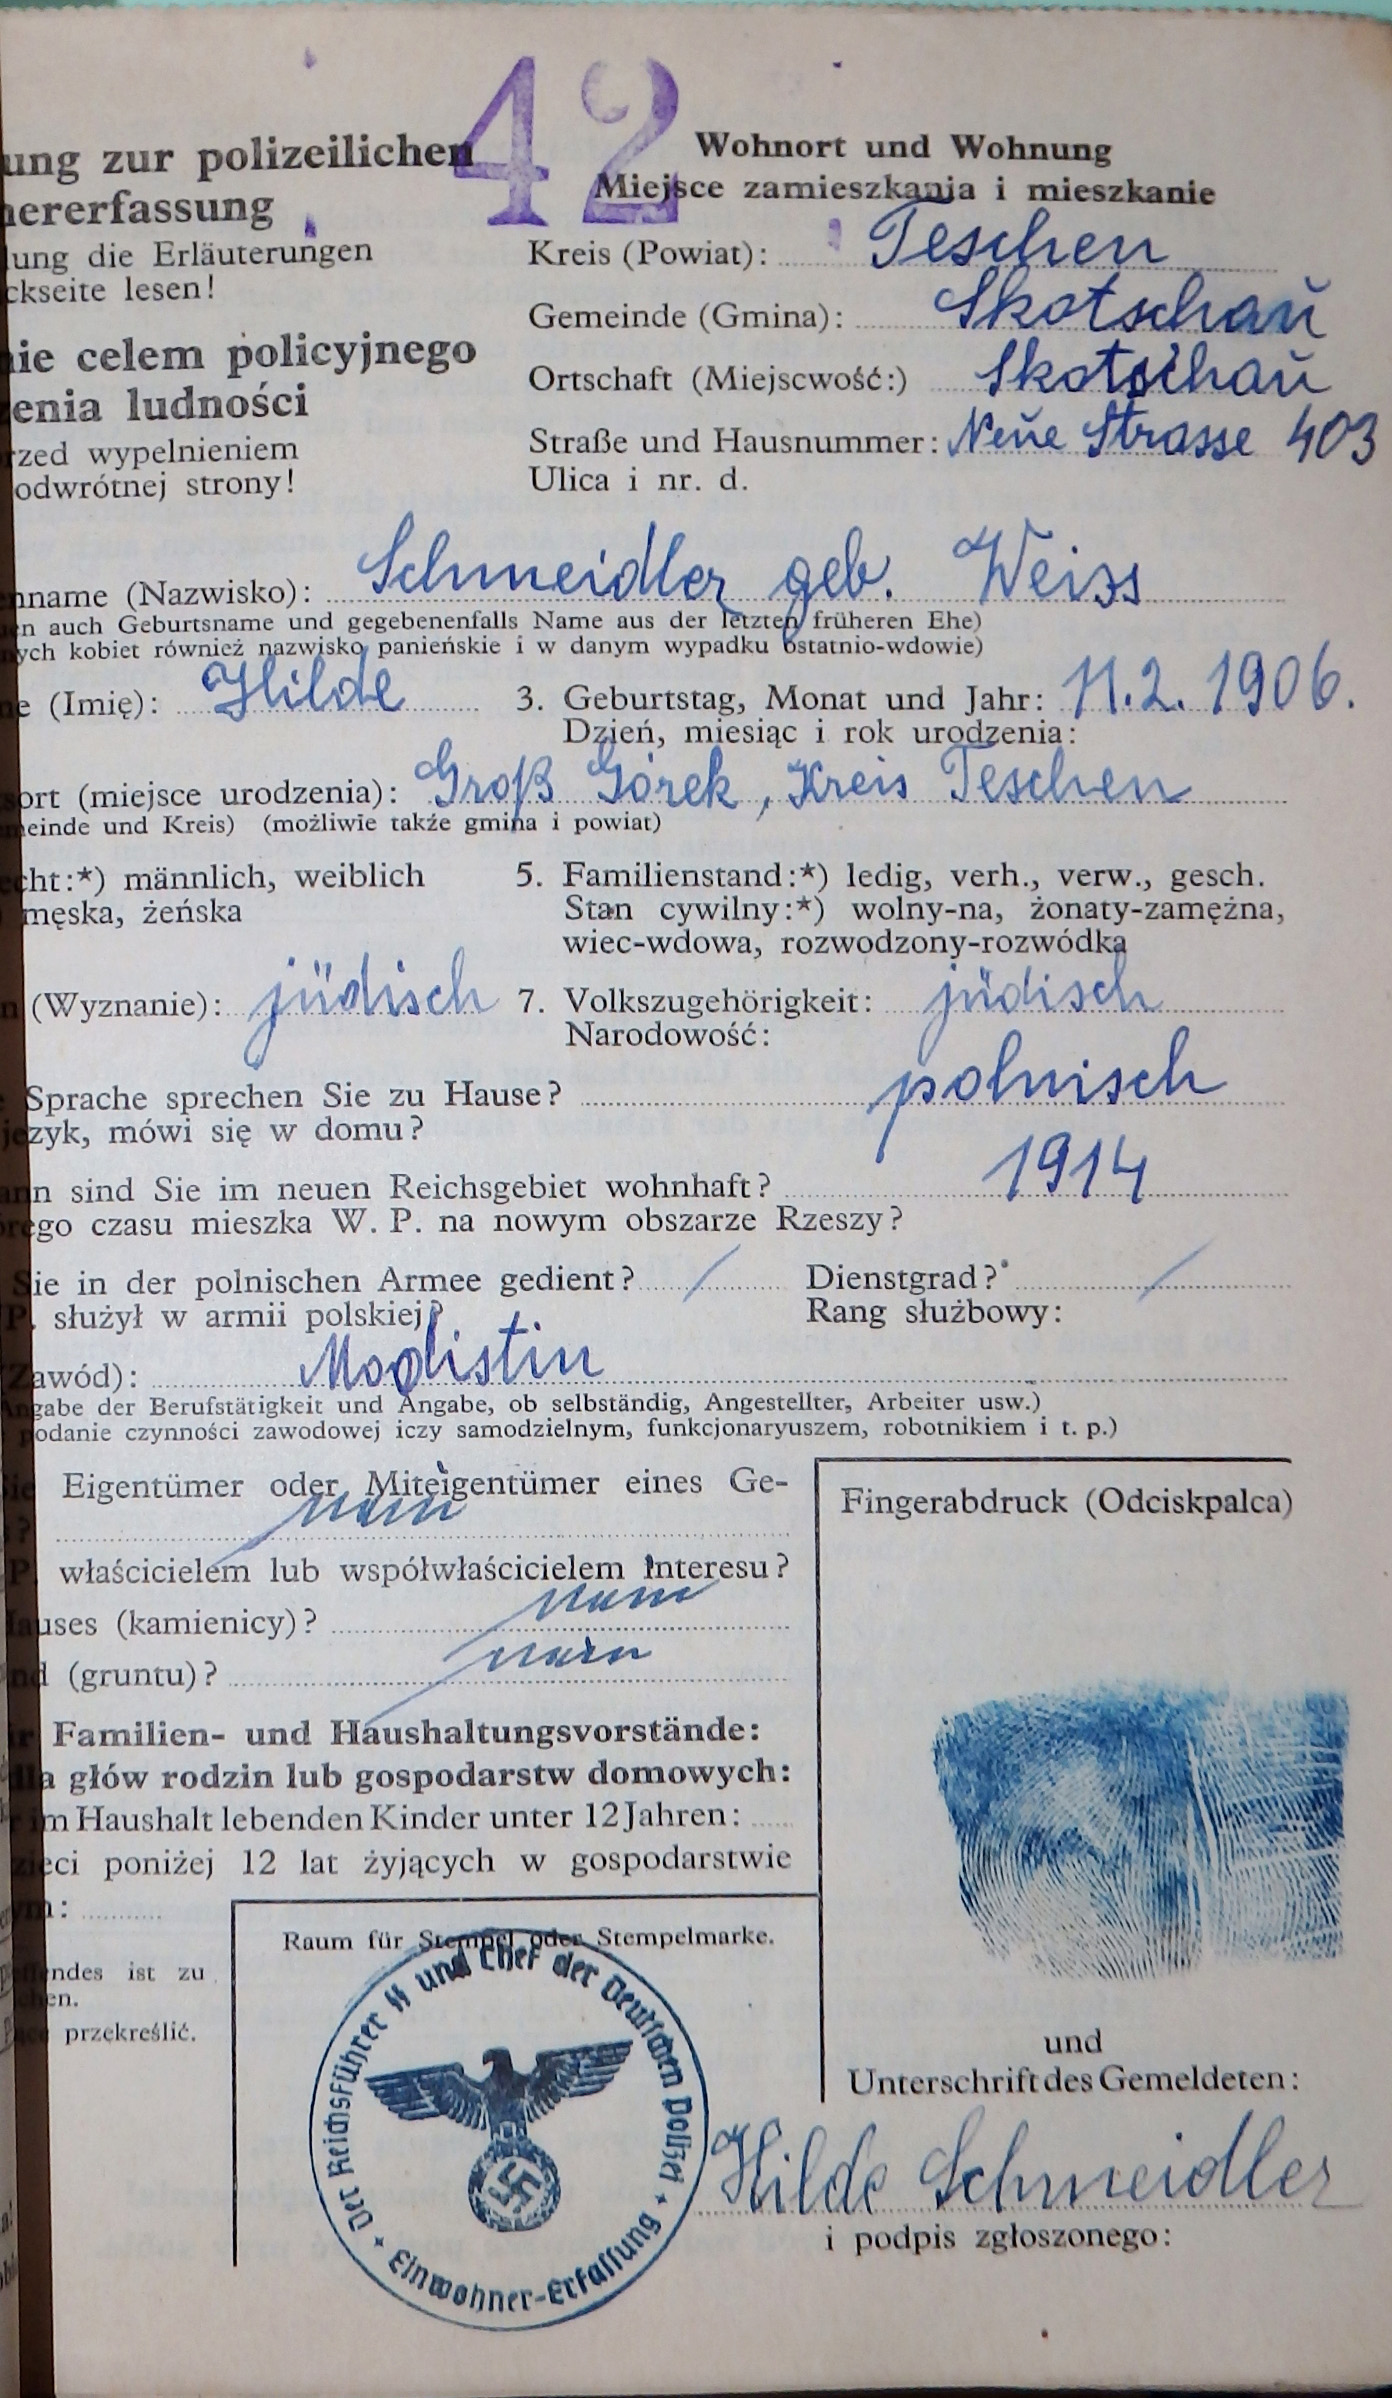 42
ung zur polizeilichen
nererfassung
lung die Erläuterungen
ckseite lesen!
nie celem policyjnego
zenia ludności
rzed wypelnieniem
odwrótnej strony!
Wohnort und Wohnung
Miejsce zamieszkania i mieszkanie
Kreis (Powiat): Teschen
Gemeinde (Gmina): Skotschau
Ortschaft (Miejscwość:) Skotschau
Straße und Hausnummer: Neue Strasse 403
Ulica i nr. d.
nname (Nazwisko): Schmeidler geb. Weiss
en auch Geburtsname und gegebenenfalls Name aus der letzten früheren Ehe)
nych kobiet również nazwisko panieńskie i w danym wypadku ostatnio-wdowie)
ne (Imię): Hilde 3. Geburtstag, Monat und Jahr: 11.2.1906.
Dzień, miesiąc i rok urodzenia:
sort (miejsce urodzenia): Groß Górek, Kreis Teschen
meinde und Kreis) (możliwie także gmina i powiat)
echt:*) männlich, weiblich 5. Familienstand:*) ledig, verh., verw., gesch.
męska, żeńska Stan cywilny:*) wolny-na, żonaty-zamężna,
wiec-wdowa, rozwodzony-rozwódka
n (Wyznanie): jüdisch 7. Volkszugehörigkeit: jüdisch
Narodowość:
Sprache sprechen Sie zu Hause? polnisch
język, mówi się w domu?
ann sind Sie im neuen Reichsgebiet wohnhaft? 1914
órego czasu mieszka W. P. na nowym obszarze Rzeszy?
Sie in der polnischen Armee gedient? / Dienstgrad? /
P. służył w armii polskiej? Rang służbowy:
Zawód): Modistin
Angabe der Berufstätigkeit und Angabe, ob selbständig, Angestellter, Arbeiter usw.)
podanie czynności zawodowej iczy samodzielnym, funkcjonaryuszem, robotnikiem i t. p.)
Sie Eigentümer oder Miteigentümer eines Ge-
? nein
P. właścicielem lub współwłaścicielem Interesu?
Hauses (kamienicy)? nein
nd (gruntu)? nein
Fingerabdruck (Odciskpalca)
r Familien- und Haushaltungsvorstände:
dla głów rodzin lub gospodarstw domowych:
r im Haushalt lebenden Kinder unter 12 Jahren:
zieci poniżej 12 lat żyjących w gospodarstwie
ym:
effendes ist zu
chen.
ące przekreślić.
Raum für Stempel oder Stempelmarke.
Der Reichsführer SS und Chef der Deutschen Polizei
Einwohner-Erfassung
und
Unterschrift des Gemeldeten:
Hilde Schmeidler
i podpis zgłoszonego: